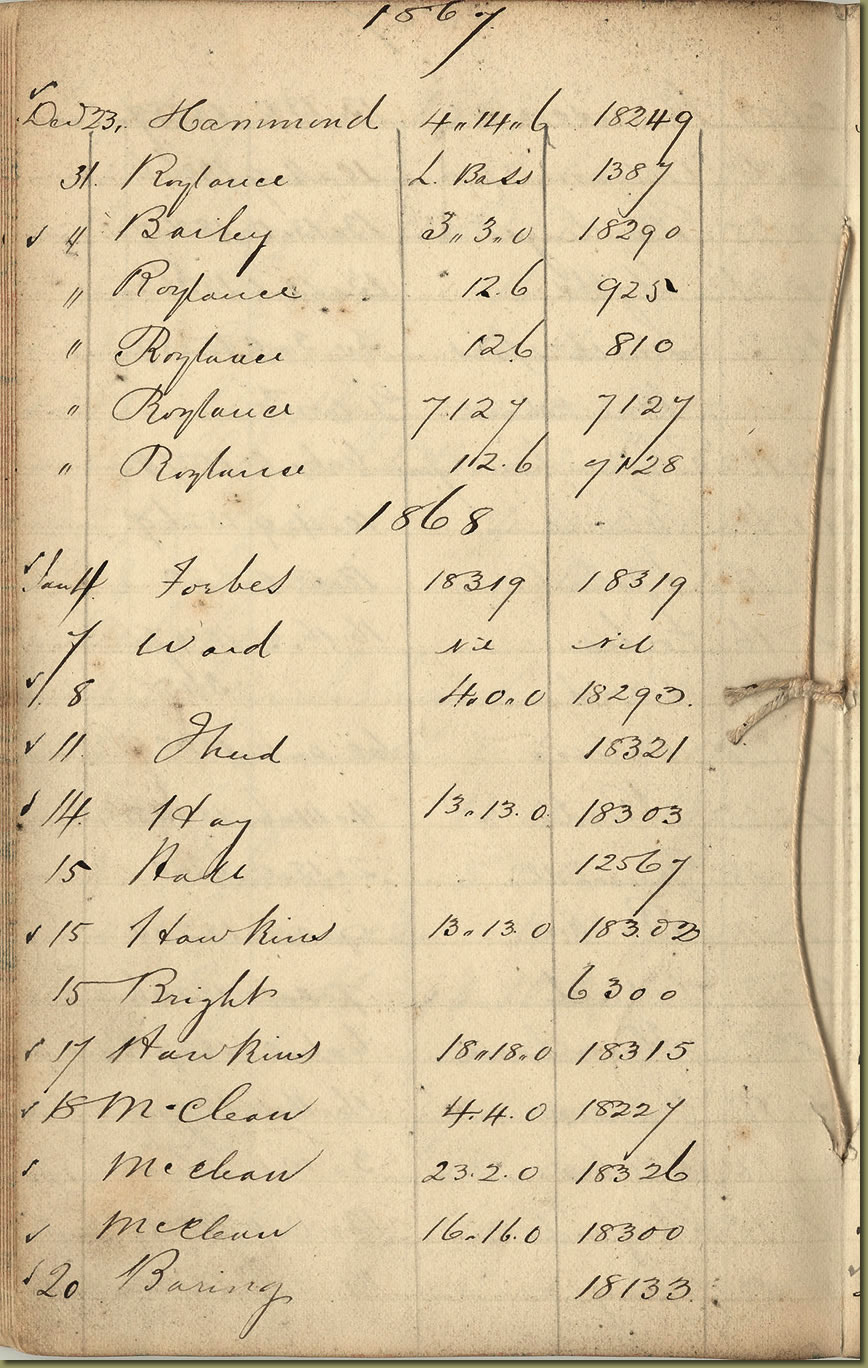 1867
Dec 23. Hammond 4,,14,,6 18249
31. Roylance L. Bass 1387
✓ 4 Bailey 3,,3,,0 18290
" Roylance 12.6 925
" Roylance 12.6 810
" Roylance 7127 7127
" Roylance 12.6 7128
1868
✓ Jan 4 Forbes 18319 18319
7 Ward Nil Nil
✓ 8 4,,0,,0 18293.
✓ 11 18321
✓ 14 Hay 13,,13.0 18303
15 Hall 12567
✓ 15 Hawkins 13,,13.0 18302
15 Bright 6300
✓ 17 Hawkins 18,,18,,0 18315
✓ 18 McClean 4.4.0 18227
✓ McClean 23.2.0 18326
✓ McClean 16,,16.0 18300
✓ 20 Baring 18133